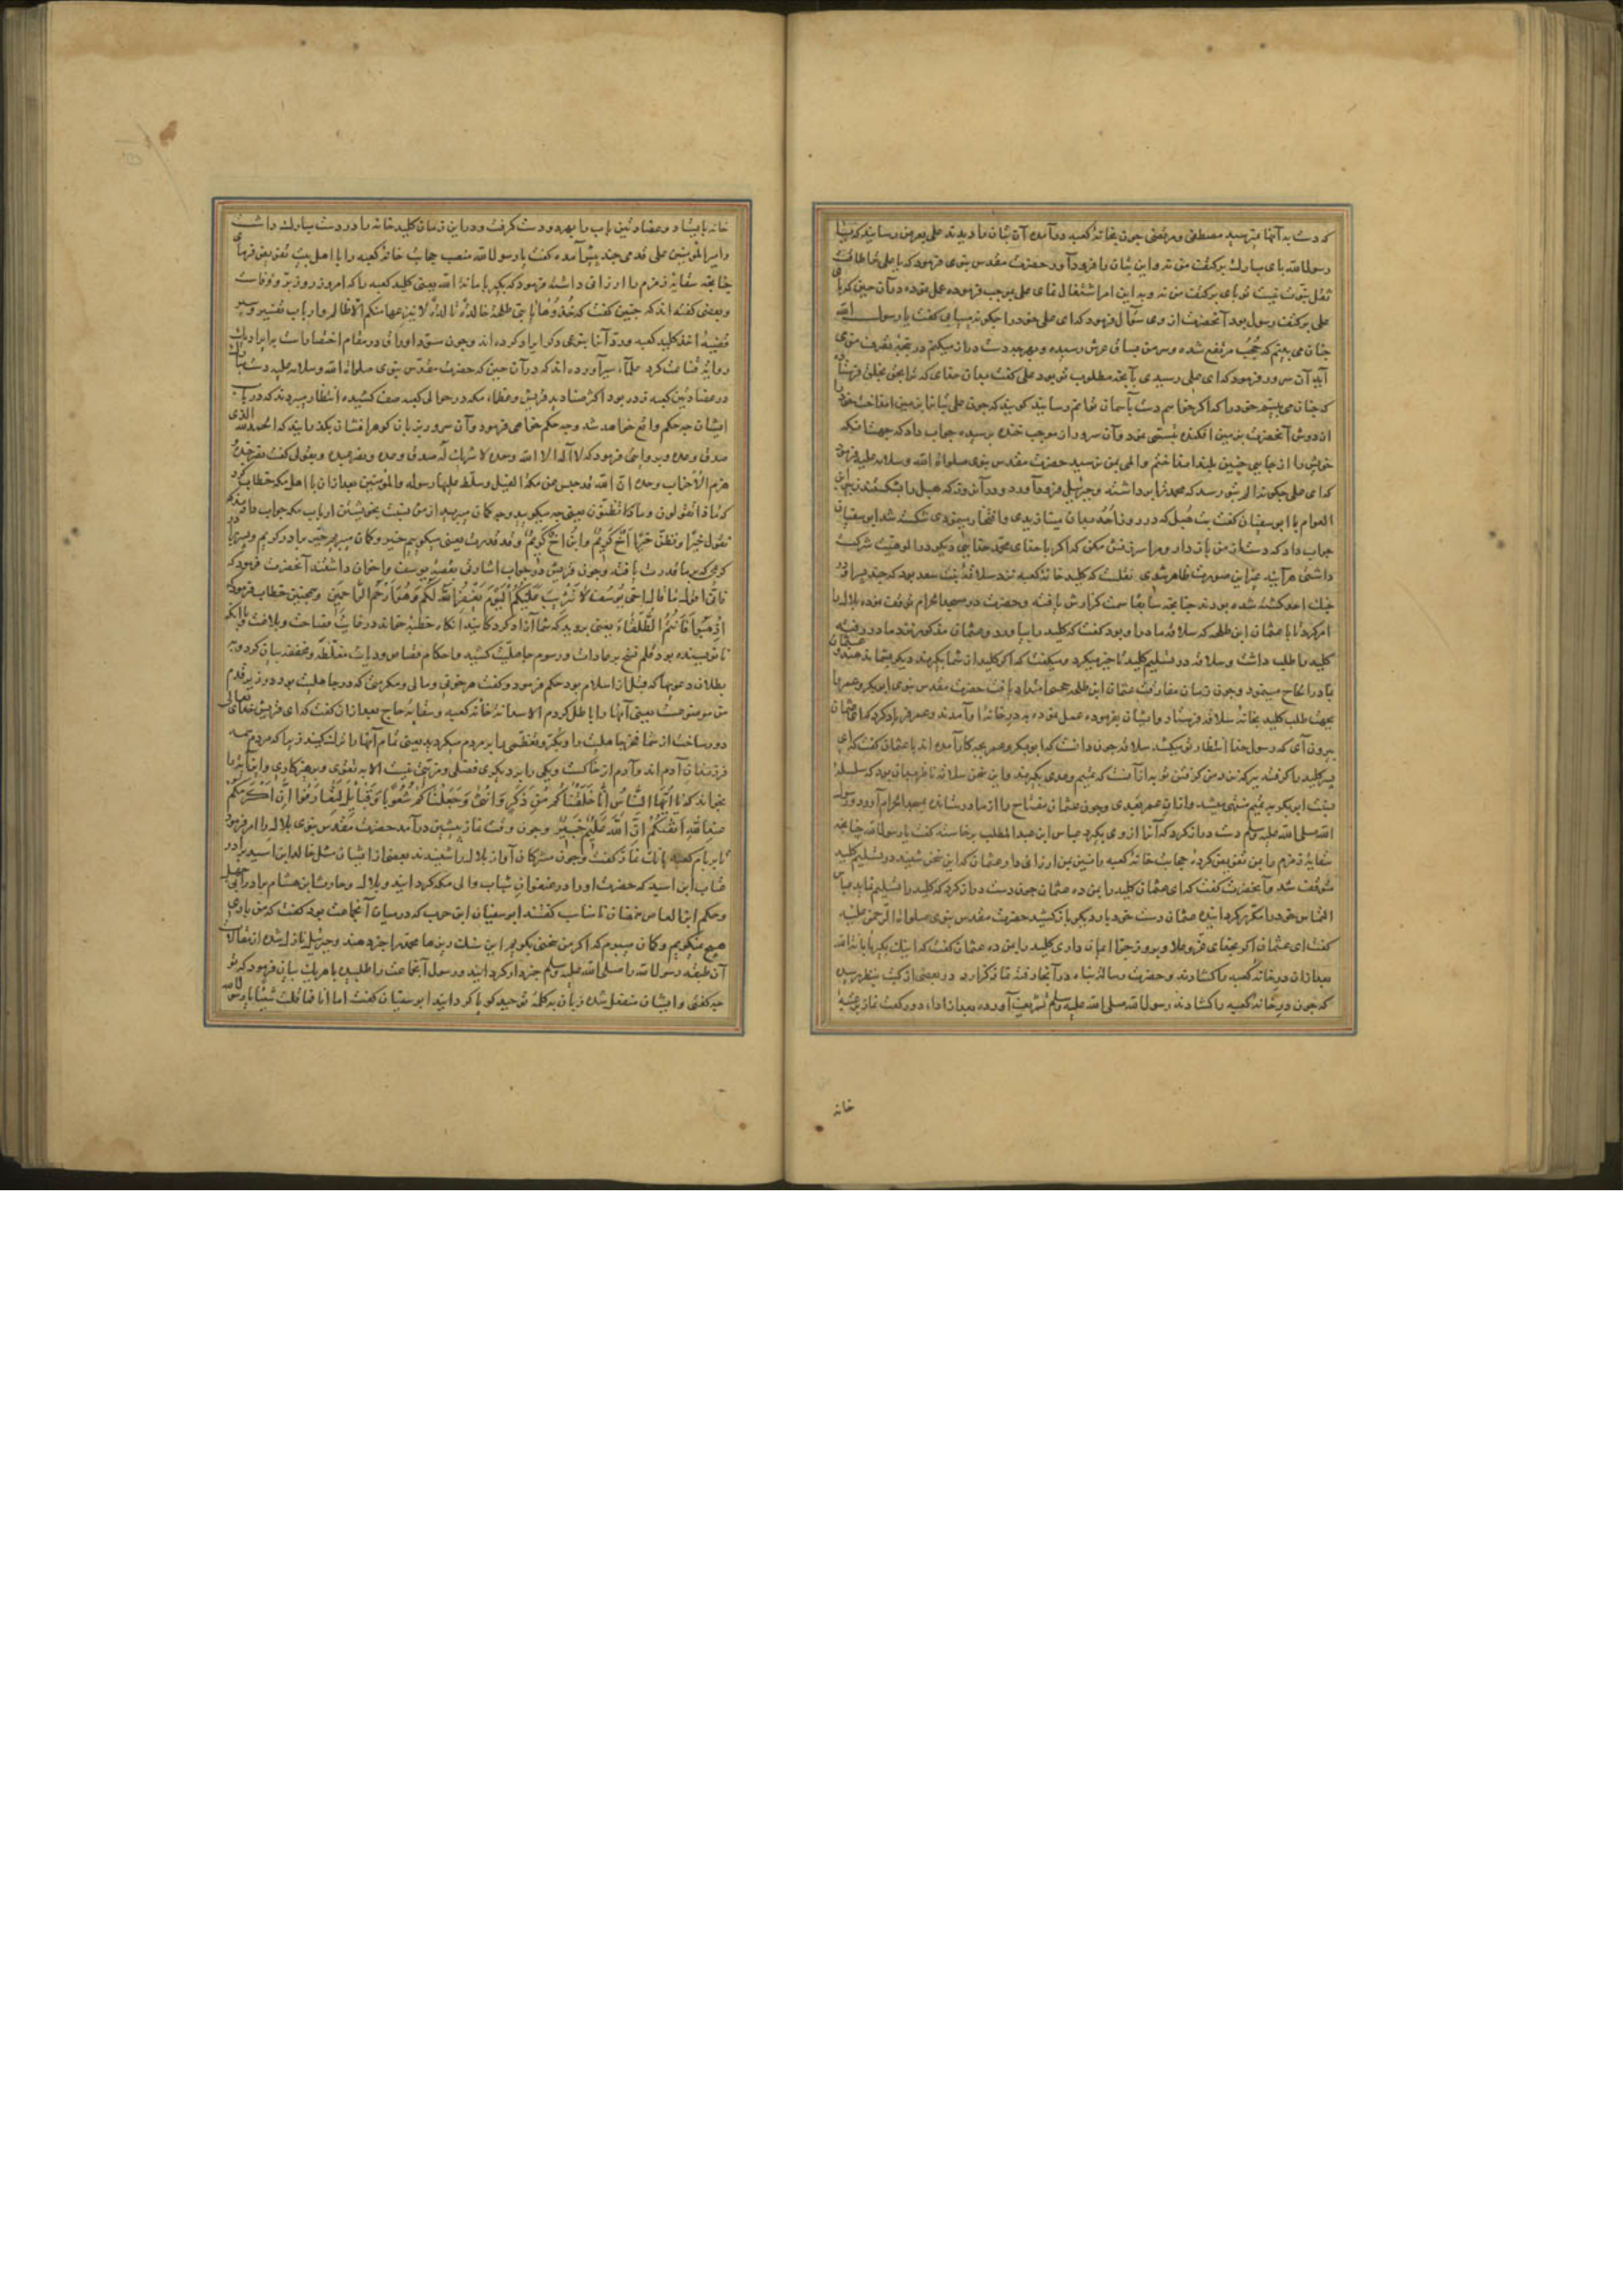 که دست به آنها میرسید مصطفی و مرتضی چون بخانهٔ کعبه درآمدن آن بتان را دیدند علی بعرض رسانید که یا
رسول الله پای مبارک بر کتف من نه و این بتان را فرود آور حضرت مقدس نبوی فرمود که یا علی ترا طاقت
ثقل نبوت نیست تو پای بر کتف من نه و به این امر اشتغال نمای علی بموجب فرموده عمل نموده در آن حین که پا
علی بر کتف رسول بود آنحضرت از وی سؤال فرمود که ای علی خود را چگونه می یابی گفت یا رسول الله
چنان می بینم که حجب مرتفع شده و سر من بساق عرش رسیده و بهر چه دست دراز میکنم در تحت تصرف من می
آید آن سرور فرمود که ای علی رسیدی بآنچه مطلوب تو بود علی گفت بدان خدای که ترا بحق بخلق فرستاده
که چنان می بینم خود را که اگر خواهم دست بآسمان توانم رسانید گویند که چون علی بتان را بر زمین انداخت خود را
از دوش آنحضرت بزمین افکنده تبسمی نمود و آن سرور از موجب خنده پرسیده جواب داد که جهت آنکه
خویش را از جایی چنین بلند انداختم و المی بمن نرسید حضرت مقدس نبوی صلوات الله و سلامه علیه فرمود
که ای علی چگونه الم بتو رسد که محمد ترا برداشته و جبرئیل فرود آورد و در آن روز که هبل را بشکستند زبیر بن
العوام با ابو سفیان گفت بت هبل که در روز احد بدان مینازیدی و افتخار مینمودی شکسته شد ابو سفیان
جواب داد که دست از من باز دار و مرا سرزنش مکن که اگر با خدای محمد خدایی دیگر در الوهیت شرکت
داشتی هر آینه غیر این صورت ظاهر شدی نقلست که کلید خانهٔ کعبه نزد سلافه بنت سعد بود که چند پسر او در
جنگ احد کشته شده بودند چنانچه سابقا سمت گزارش یافته و حضرت در مسجد الحرام توقف نموده بلال را
امر کرد تا با عثمان ابن طلحه که سلافه مادر او بود گفت که کلید را بیاورد و عثمان مذکور نزد مادر رفته
کلید را طلب داشت و سلافه در تسلیم کلید تاخیر میکرد و میگفت که اگر کلید از شما بگیرند دیگر بشما ندهند و عثمان
مادر الحاح مینمود و چون زمان مفارقت عثمان ابن طلحه امتداد یافت حضرت مقدس نبوی ابو بکر و عمر را
بجهت طلب کلید بخانهٔ سلافه فرستاد و ایشان بفرموده عمل نموده بدر خانهٔ او آمدند و عمر فریاد کرد که ای عثمان
بیرون آی که رسول خدا انتظار تو میکشد سلافه چون دانست که ابو بکر و عمر بچه کار آمده اند با عثمان گفت که ای
پسر کلید را گرفته ببر که نزد من گرفتن تو به از آنست که تیم و عدی بگیرند و این سخن سلافه ناظر بآن بود که سلسلهٔ
نسبت ابو بکر به تیم منتهی میشد و از آن عمر بعدی و چون عثمان مفتاح را از مادر ستانده بمسجد الحرام آورد رسول
الله صلی الله علیه وسلم دست دراز کرد که آنرا از وی بگیرد عباس ابن عبد المطلب برخاسته گفت یا رسول الله چنانچه
سقایهٔ زمزم را بمن تفویض کردهٔ حجابت خانهٔ کعبه را نیز بمن ارزانی دار و عثمان که این سخن شنید در تسلیم کلید
متوقف شد و آنحضرت گفت که ای عثمان کلید را بمن ده عثمان چون دست دراز کرد که کلید را تسلیم نماید عباس
التماس خود را مکرر گردانیده عثمان دست خود بار دیگر باز کشید حضرت مقدس نبوی صلوات الرحمن علیه
گفت ای عثمان اگر بخدای عز و علا و بروز جزا ایمان داری کلید را بمن ده عثمان گفت که اینک بگیر بامانة الله
بعد از آن در خانهٔ کعبه را گشادند و حضرت رسالت پناه در آنجا رفته نماز گزارد و در بعضی از کتب بنظر رسیده
که چون در خانهٔ کعبه را گشادند رسول الله صلی الله علیه وسلم تشریف آورده بعد از اداء دو رکعت نماز بر عتبهٔ
خانه
خانه بایستاد و عضادتین باب را بهر دو دست گرفت و در این زمان کلید خانه را در دست مبارک داشت
و امیر المؤمنین علی قدمی چند پیش آمده گفت یا رسول الله منصب حجابت خانهٔ کعبه را با اهل بیت تفویض فرمای
چنانچه سقایهٔ زمزم را ارزانی داشتهٔ فرمود که بگیر بامانة الله یعنی کلید کعبه را که امروز روز بر و وفاست
و بعضی گفته اند که چنین گفت که خذوها یا بنی طلحة خالدة تالدة لا ینزعها منکم الا ظالم و ارباب تفسیر و سیر
قضیهٔ اخذ کلید کعبه و رد آنرا بنوعی دیگر ایراد کرده اند و چون مسود اوراق در مقام اختصار است بر ایراد یک
روایت قناعت کرد علماء سیر آورده اند که در آن حین که حضرت مقدس نبوی صلوات الله و سلامه علیه دست مبارک
در عضادتین کعبه زده بود اکثر صنادید قریش و عظماء مکه در حوالی کعبه صف کشیده انتظار میبردند که در باب
ایشان چه حکم واقع خواهد شد و چه حکم خواهی فرمود و آن سرور زبان گوهر افشان بگذرانید که الحمد لله الذی
صدق وعده و بروایتی فرمود که لا اله الا الله وحده لا شریک له صدق وعده و نصر عبده و بقولی گفت نصر جنده
هزم الاحزاب وحده ان الله قد حبس عن مکة الفیل و سلط علیها رسوله و المؤمنین بعد از آن با اهل مکه خطاب کرد
که ماذا تقولون و ماذا تظنون یعنی چه میگویید و چه گمان میبرید از من نسبت بخویشتن ارباب مکه جواب دادند که
نقول خیرا و نظن خیرا اخ کریم و ابن اخ کریم و قد قدرت یعنی میگوییم خیر و گمان میبریم خیر برادر کریم و پسر برادر
کریمی که بر ما قدرت یافته و چون قریش در جواب اشارتی بقصهٔ یوسف و اخوان داشتند آنحضرت فرمود که
فانی اقول کما قال اخی یوسف لا تثریب علیکم الیوم یغفر الله لکم و هو ارحم الراحمین و همچنین خطاب فرمود که
اذهبوا فانتم الطلقاء یعنی بروید که شما آزاد کردگانید آنگاه خطبه خواند در غایت فصاحت و بلاغت و آنکه
نانویسنده بود قلم نسخ بر عادات و رسوم جاهلیت کشید و احکام قصاص و دیات مغلظه و مخففه بیان کرد و به
بطلان دعویها که قبل از اسلام بود حکم فرمود و گفت هر خونی و مالی و مکرمتی که در جاهلیت بود در زیر قدم
من موضوعست یعنی آنها را باطل کردم الا سدانهٔ خانهٔ کعبه و سقایهٔ حاج بعد از آن گفت که ای قریش خدای تعالی
دور ساخت از شما فخرهای جاهلیت را و تکبر و تعظمی که بر مردم میکردید یعنی تمام آنها را ترک کنید زیرا که مردم همه
فرزندان آدم اند و آدم از خاکست و یکی را بر دیگری فضلی و مزیتی نیست الا به تقوی و پرهیزکاری و این آیه را
بخواند که یا ایها الناس انا خلقناکم من ذکر و انثی و جعلناکم شعوبا و قبائل لتعارفوا ان اکرمکم
عند الله اتقیکم ان الله علیم خبیر و چون وقت نماز پیشین درآمد حضرت مقدس نبوی بلال را امر فرمود
تا بر بام کعبه بانگ نماز گفت و چون مشرکان آواز بلال را شنیدند بعضی از ایشان مثل خالد ابن اسید برادر
عتاب ابن اسید که حضرت او را در عنفوان شباب والی مکه گردانید و بلال و حارث ابن هشام برادر ابی جهل
و حکم ابن العاص سخنان نامناسب گفتند ابو سفیان ابن حرب که در میان آنجماعت بود گفت که من باری
هیچ نمیگویم و گمان میبرم که اگر من سخنی بگویم این سنگ ریزها محمد را خبر دهند و جبرئیل نازل شده از مقالات
آن طبقه رسول الله را صلی الله علیه وسلم خبردار گردانید و رسول آنجماعت را طلبیده با هر یک بیان فرمود که تو
چه گفتی و ایشان منفعل شده زبان به کلمهٔ توحید گویا گردانیدند ابو سفیان گفت اما انا فما قلت شیئا یا رسول الله